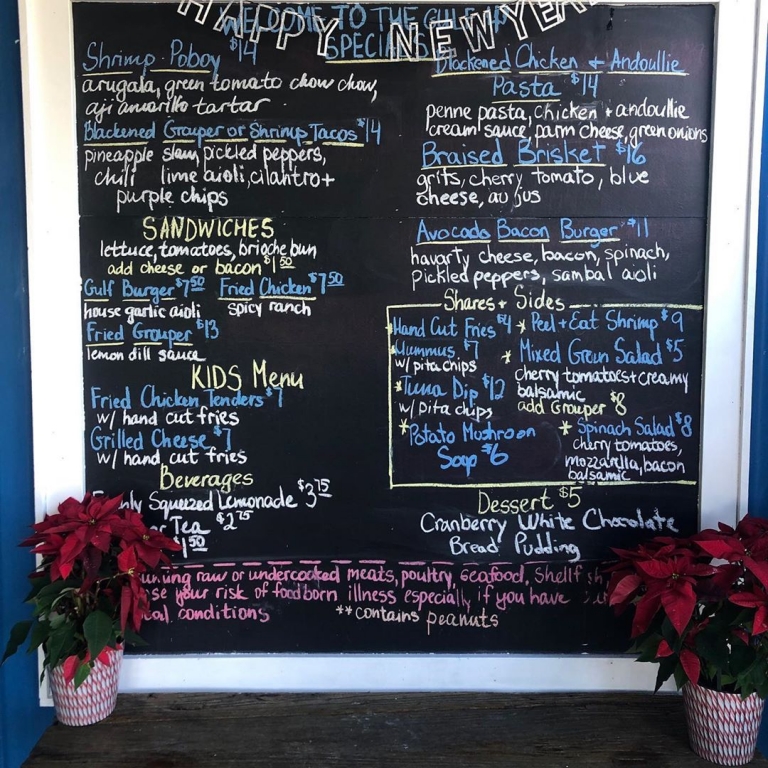 HAPPY NEW YEA
WELCOME TO THE GULF
SPECIALS
Shrimp Poboy $14
arugala, green tomato chow chow,
aji amarillo tartar
Blackened Grouper or Shrimp Tacos $14
pineapple slaw, pickled peppers,
chili lime aioli, cilantro +
purple chips
SANDWICHES
lettuce, tomatoes, brioche bun
add cheese or bacon $1.50
Gulf Burger $7.50 Fried Chicken $7.50
house garlic aioli spicy ranch
Fried Grouper $13
lemon dill sauce
KIDS Menu
Fried Chicken Tenders $7
w/ hand cut fries
Grilled Cheese $7
w/ hand cut fries
Beverages
Squeezed Lemonade $3.75
Tea $2.75
$1.50
Blackened Chicken + Andoullie
Pasta $14
penne pasta, chicken + andoullie
cream sauce, parm cheese, green onions
Braised Brisket $16
grits, cherry tomato, blue
cheese, au jus
Avocado Bacon Burger $11
havarty cheese, bacon, spinach,
Pickled peppers, sambal aioli
Shares + Sides
*Hand Cut Fries $4
*Hummus $7
w/ pita chips
*Tuna Dip $12
w/ pita chips
*Potato Mushroom
Soup $6
*Peel + Eat Shrimp $9
*Mixed Green Salad $5
cherry tomatoes + creamy
balsamic
add Grouper $8
*Spinach Salad $8
cherry tomatoes,
mozzarella, bacon
balsamic
Dessert $5
Cranberry White Chocolate
Bread Pudding
raw or undercooked meats, poultry, seafood,
your risk of foodborn illness especially if you have
conditions **contains peanuts